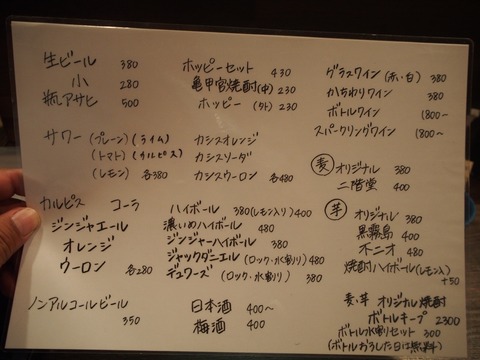 生ビール 380
小 280
瓶アサヒ 500
サワー (プレーン)(ライム)
(トマト)(カルピス)
(レモン) 各380
カルピス コーラ
ジンジャエール
オレンジ
ウーロン 各280
ノンアルコールビール
350
ホッピーセット 430
亀甲宮焼酎(中) 230
ホッピー (外) 230
カシスオレンジ
カシスソーダ
カシスウーロン 各480
ハイボール 380(レモン入り)400
濃いめハイボール 480
ジンジャーハイボール 380
ジャックダニエル(ロック・水割り)480
デュワーズ(ロック、水割り) 380
日本酒 400〜
梅酒 400
グラスワイン (赤い白) 380
かちわりワイン 380
ボトルワイン 1800〜
スパークリングワイン 1800〜
麦 オリジナル 380
二階堂 400
芋 オリジナル 380
黒霧島 400
不二才 480
焼酎ハイボール(レモン入)
+50
麦、芋 オリジナル焼酎
ボトルキープ 2300
ボトル水割りセット 300
(ボトルおろした日は無料)